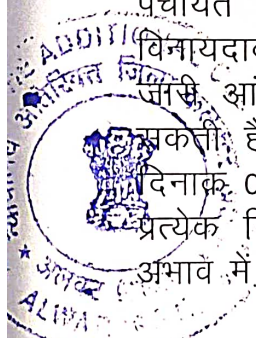 पंचायत
विनायदा
जारी आ
सकती है
दिनांक 0
प्रत्येक
अभाव में
ADDITI
अतिरिक्त जिला
अलवर
ALWA